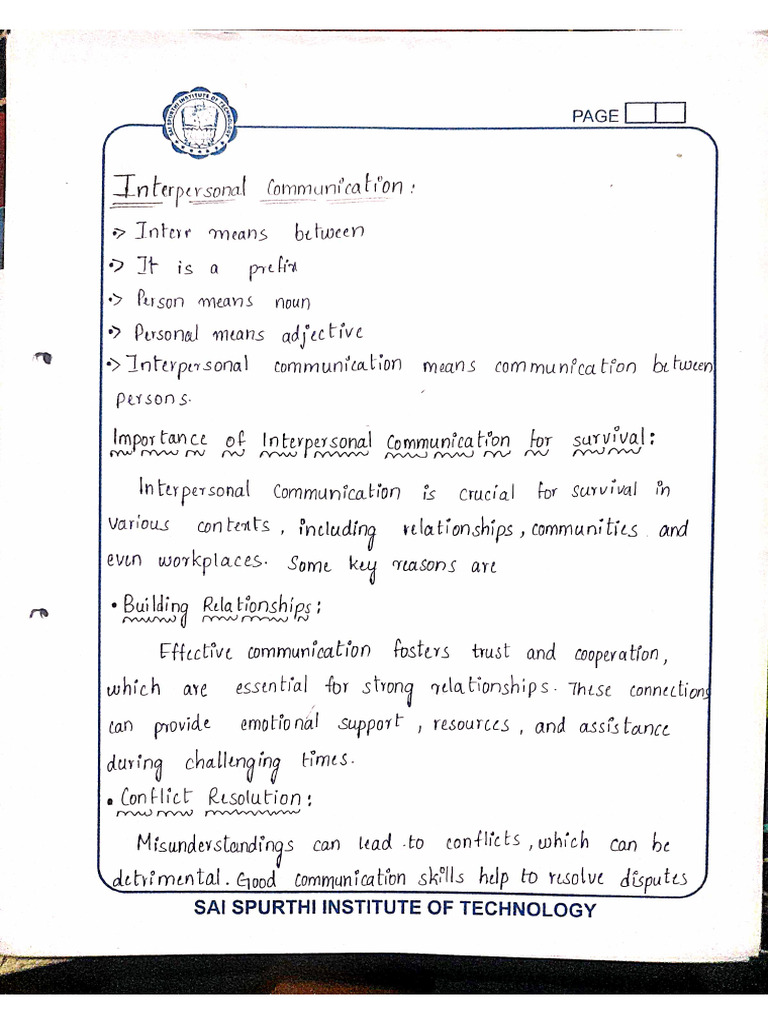 SAI SPURTHI INSTITUTE OF TECHNOLOGY
PAGE
Interpersonal Communication:
•> Interr means between
•> It is a prefix
•> Person means noun
•> Personal means adjective
•> Interpersonal communication means communication between
persons.
Importance of Interpersonal Communication for survival:
Interpersonal Communication is crucial for survival in
various contents, including relationships, communities and
even workplaces. Some key reasons are
• Building Relationships:
Effective communication fosters trust and cooperation,
which are essential for strong relationships. These connections
can provide emotional support, resources, and assistance
during challenging times.
• Conflict Resolution:
Misunderstandings can lead to conflicts, which can be
detrimental. Good communication skills help to resolve disputes
SAI SPURTHI INSTITUTE OF TECHNOLOGY